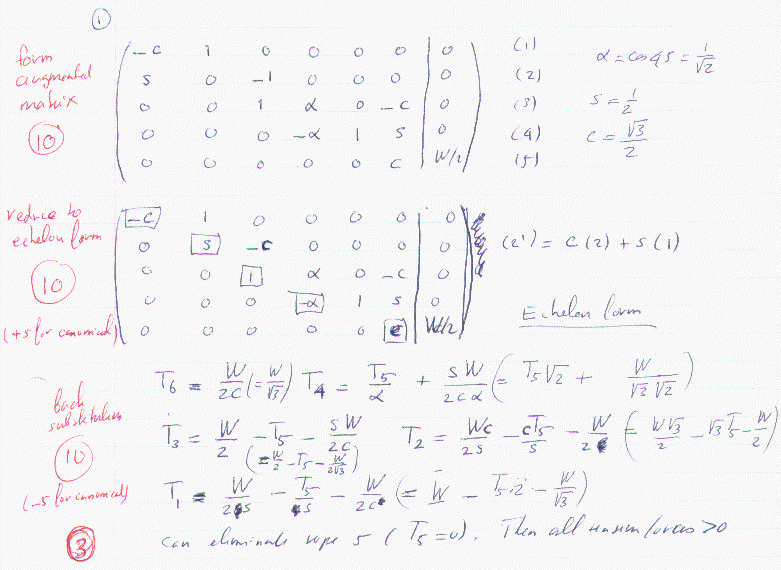 ①
form
augmented
matrix
⑩
-c 1 0 0 0 0 | 0 (1)
s 0 -1 0 0 0 | 0 (2)
0 0 1 α 0 -c | 0 (3)
0 0 0 -α 1 s | 0 (4)
0 0 0 0 0 c | W/2 (5)
α = cos 45 = 1/√2
s = 1/2
c = √3/2
reduce to
echelon form
⑩
(+5 for canonical)
-c 1 0 0 0 0 | 0
0 s -c 0 0 0 | 0 (2') = c (2) + s (1)
0 0 1 α 0 -c | 0
0 0 0 -α 1 s | 0
0 0 0 0 0 c | W/2
Echelon form
Back
substitution
⑩
(-5 for canonical)
T6 = W/2c (= W/√3) T4 = T5/α + sW/2cα (= T5√2 + W/√3√2)
T3 = W/2 - T5 - sW/2c (= W/2 - T5 - W/2√3) T2 = Wc/2s - cT5/s - W/2 (= W√3/2 - √3T5 - W/2)
T1 = W/2s - T5/s - W/2c (= W - T5·2 - W/√3)
③
can eliminate rope 5 (T5=0). Then all tension forces >0